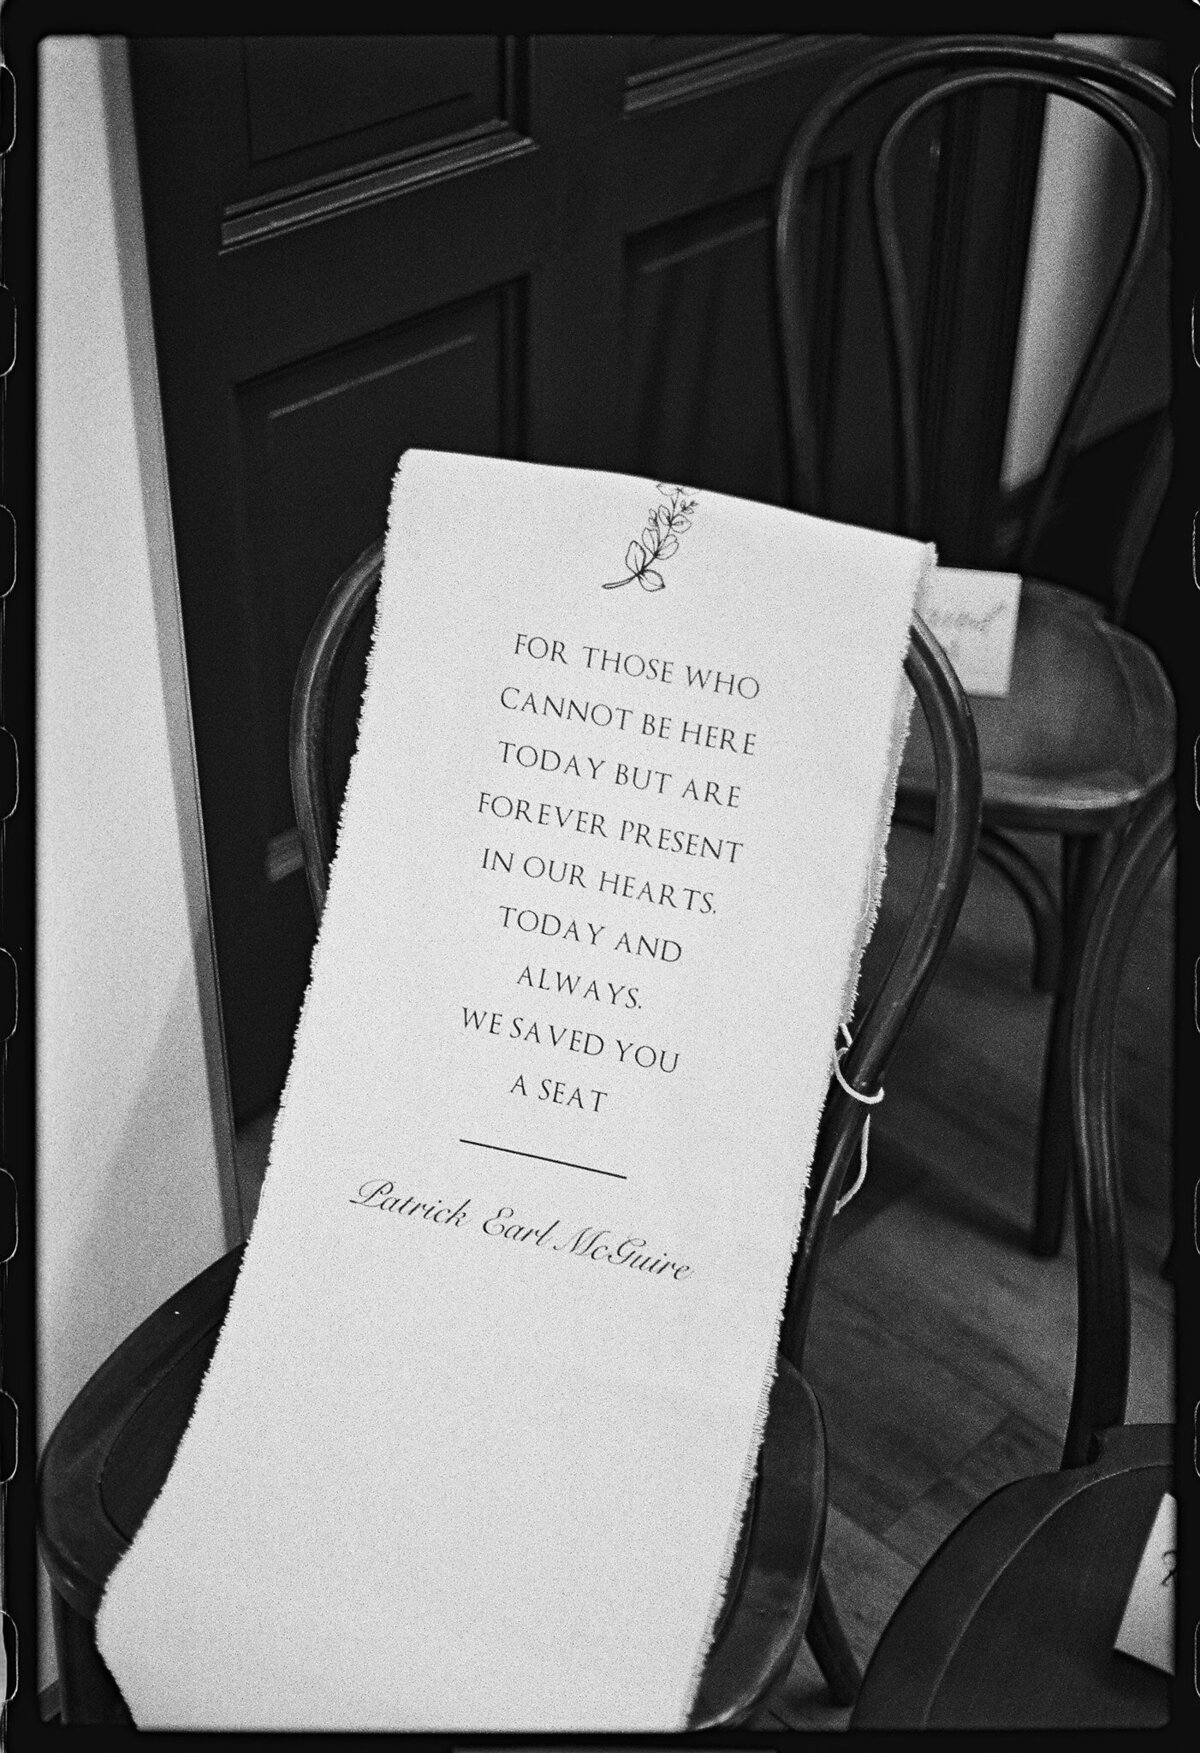 FOR THOSE WHO
CANNOT BE HERE
TODAY BUT ARE
FOREVER PRESENT
IN OUR HEARTS.
TODAY AND
ALWAYS.
WE SAVED YOU
A SEAT
Patrick Earl McGuire